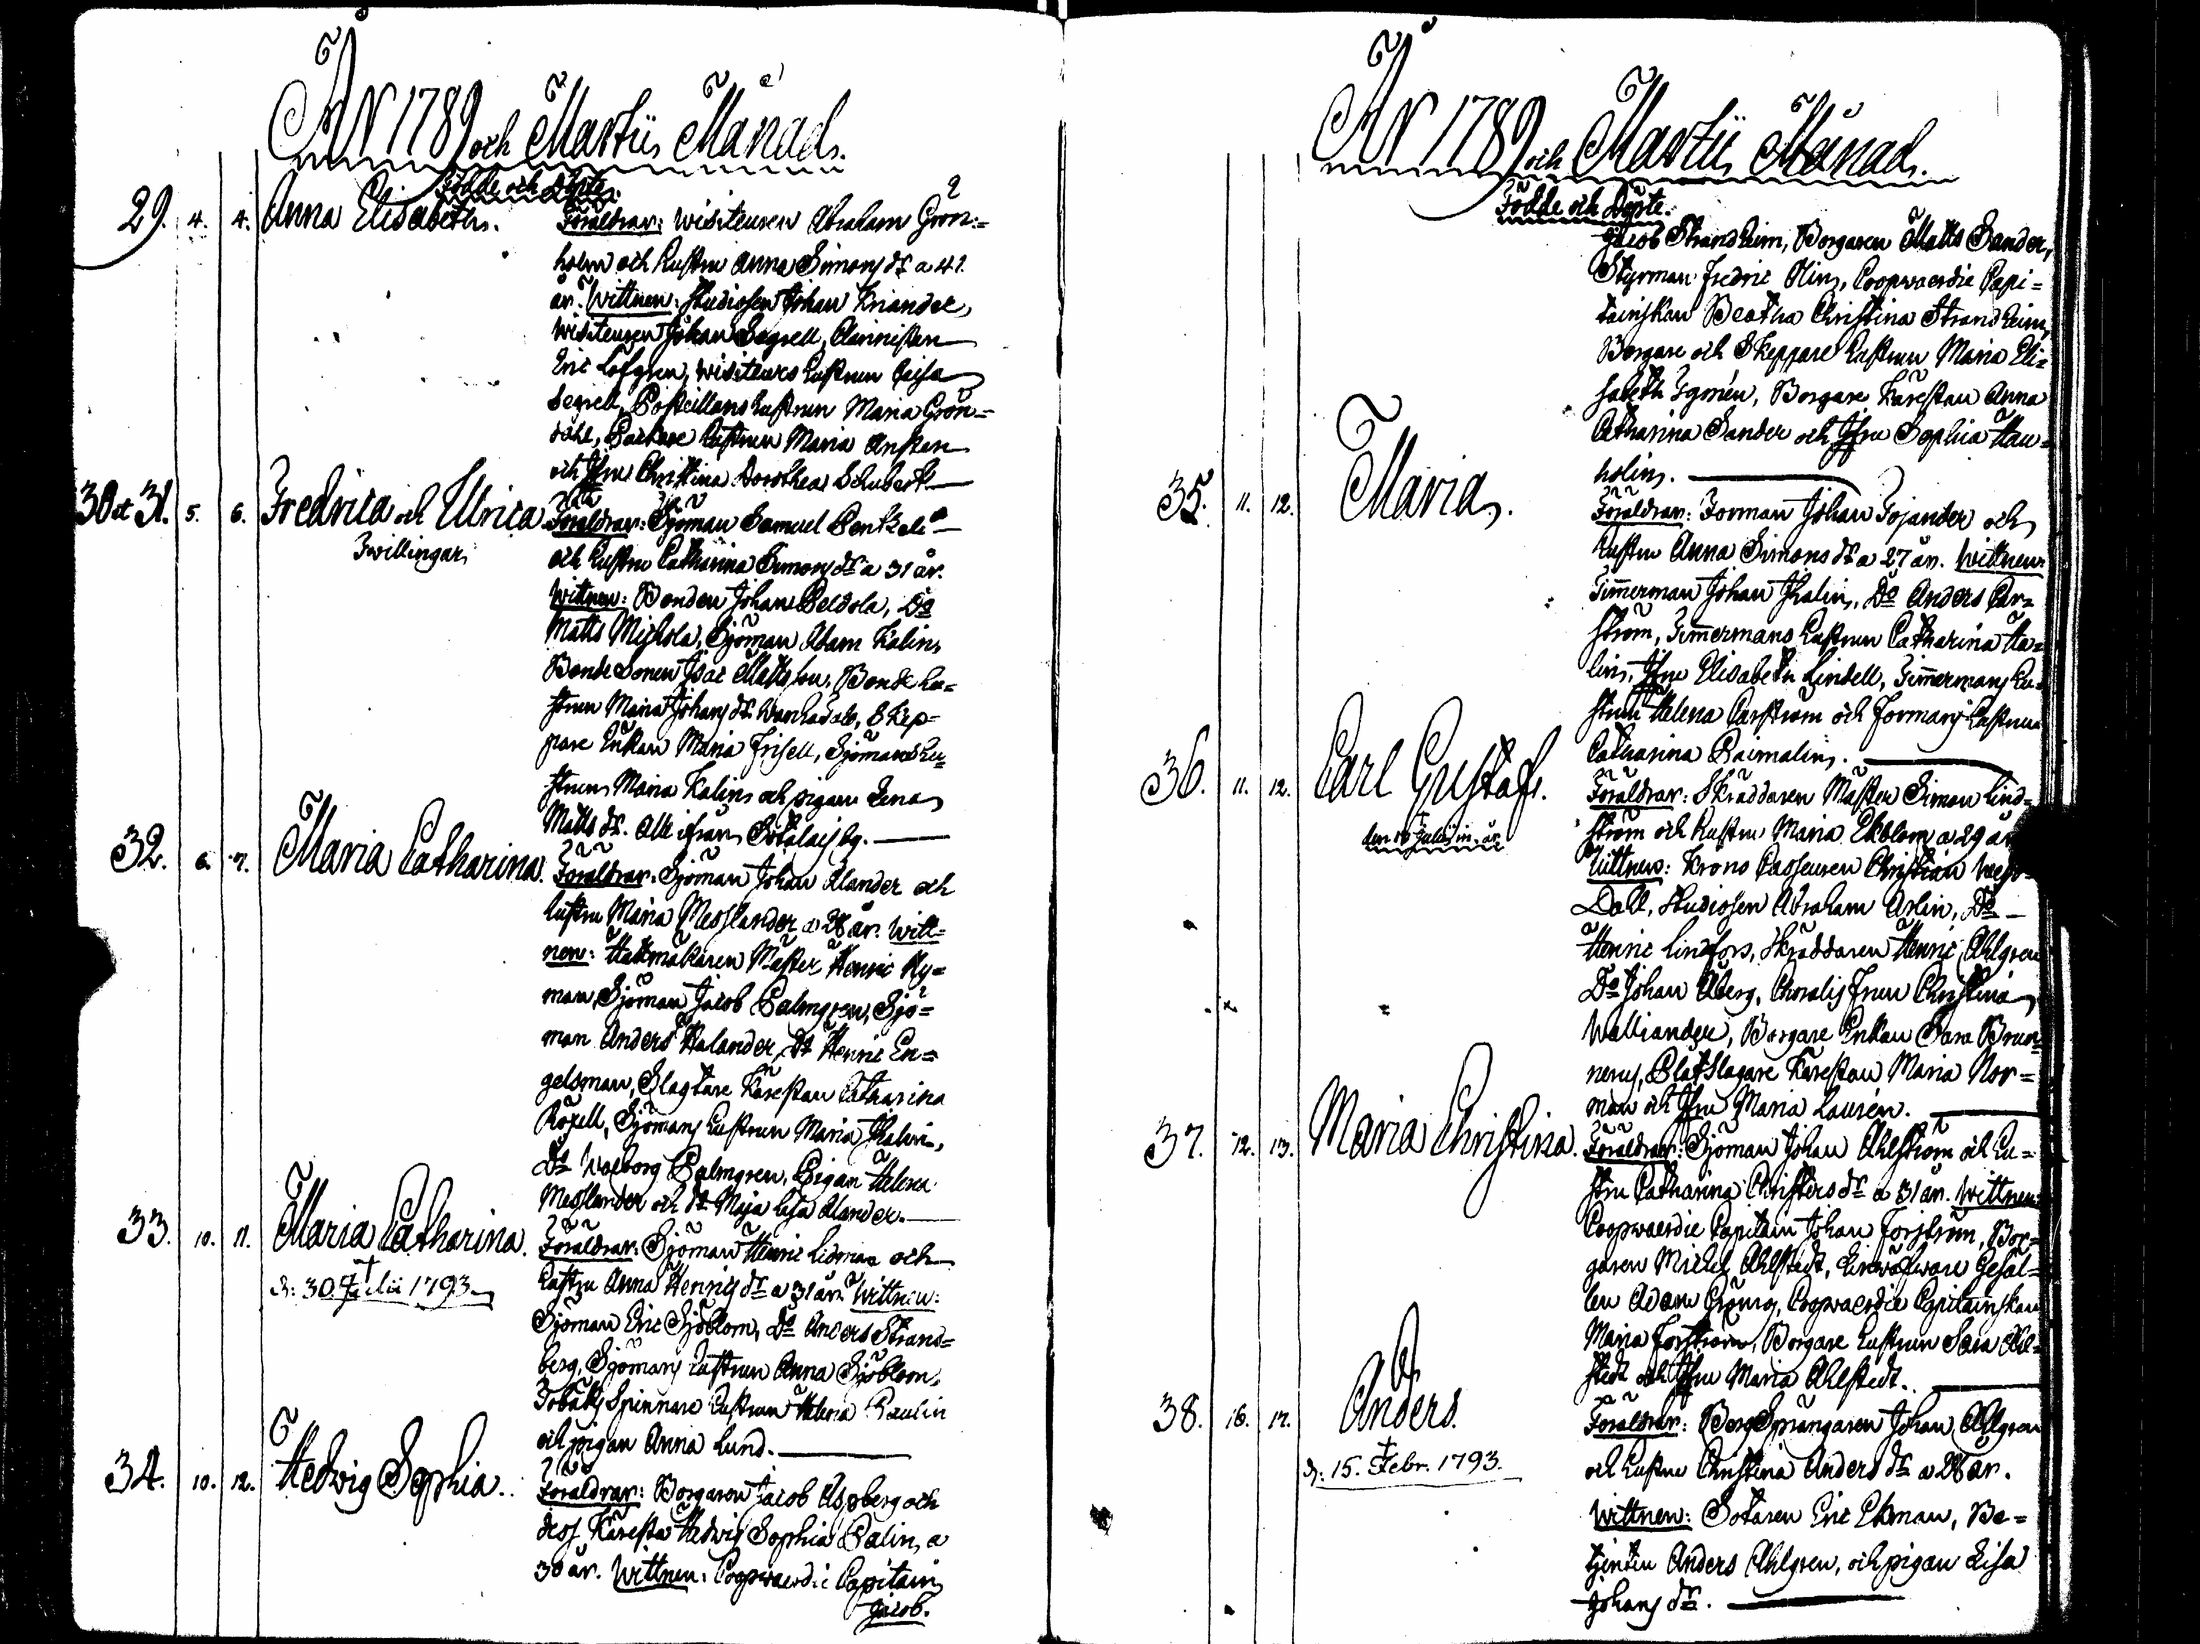 År 1789 och Martii Månad.
Födde och Döpte.
29. 4. 4. Anna Elisabeth. Föräldrar: Wisiteuren Abraham Grön=
holm och hustru Anna Simons dr a 41.
år. Wittnen: Studiosen Johan Kriander,
Wisiteuren Johan Segrell,
Eric Löfgren, Wisiteurs hustrun Caisa
Segrell, hustrun Maria Grön=
dahl, hustrun Maria
och Jfru Christina Dorothea Schubert.
30 et 31. 5. 6. Fredrica och Ulrica Föräldrar: Sjöman Samuel
Twillingar. och hustru Catharina Simons dr a 31 år.
Wittnen: Bonden Johan Peldola, Do
Matts Mickola, Sjöman Adam Kalin,
Bonde Sonen Isac Mattsson, Bonde hu=
strun Maria Johans dr Skep=
pare Enkan Maria Frisell, Sjömans hu=
strun Maria Kalin och pigan Lena
Matts dr. Alle ifrån
32. 6. 7. Maria Catharina. Föräldrar: Sjöman Johan Alander och
hustru Maria Messlander a 28 år. Witt=
nen: Hattmakaren Mäster Henric Ny=
man, Sjöman Jacob Palmgren, Sjö=
man Anders Kalander, Do Henric En=
gelsman, Slagtare Kärestan Catharina
Roxell, Sjömans hustrun Maria Thalin,
Do Walborg Palmgren, Pigan Helena
Messlander och Do Maja Lisa Alander.
33. 10. 11. Maria Catharina. Föräldrar: Sjöman Henric Lidman och
†
d: 30 Julii 1793. hustru Anna Henrics dr a 31 år. Wittnen:
Sjöman Eric Sjöblom, Do Anders Strand=
berg, Sjömans hustrun Anna Sjöblom,
Tobaks Spinnare hustrun Helena Paulin
och pigan Anna Lund.
34. 10. 12. Hedvig Sophia. Föräldrar: Borgaren Jacob Aspberg och
dess Käresta Hedvig Sophia Palin, a
30 år. Wittnen: Coopwaerdie Capitain
Jacob.
År 1789 och Martii Månad.
Födde och Döpte.
Jacob Strandheim, Borgaren Matts Sander,
Styrman Fredric Olin, Coopwaerdie Capi=
tainskan Beatha Christina Strandheim,
Borgare och Skeppare hustrun Maria Eli=
sabeth Borgare Kärestan Anna
Catharina Sander och Jfru Sophia Hau=
holin.
35. 11. 12. Maria. Föräldrar: Forman Johan Tojander och
hustru Anna Simons dr a 27 år. Wittnen:
Timmerman Johan Thalin, Do Anders Car=
ström, Timmermans hustrun Catharina Tha=
lin, Jfru Elisabeth Lindell, Timmermans hu=
strun Helena Carström och Formans hustrun
Catharina
36. 11. 12. Carl Gustaf. Föräldrar: Skräddaren Mäster Simon Lind=
†
ström och hustru Maria Ekblom a 29 år
Wittnen: Krono Casseuren Christian
Dall, Studiosen Abraham Arlin, Do
Henric Lindfors, Skräddaren Henric Ahlgren
Do Johan Åberg, Choralis Frun Christina
Walliander, Borgare Enkan Sara Brun=
nerus, Plåtslagare Kärestan Maria Nor=
man och Jfru Maria Laurén.
37. 12. 13. Maria Christina. Föräldrar: Sjöman Johan Ahlström och hu=
stru Catharina Christers dr a 31 år. Wittnen:
Coopwaerdie Capitain Johan Forström, Bor=
garen Michel Ahlstedt, Linwäfware Gesäl=
len Adam Coopwaerdie Capitainskan
Maria Forström, Borgare hustrun Sara Ahl=
stedt och Jfru Maria Ahlstedt.
38. 16. 17. Anders. Föräldrar: BergSprängaren Johan Ahlgren
†
d: 15. Febr. 1793. och hustru Christina Anders dr a 28 år.
Wittnen: Sotaren Eric Ekman, Be=
tjenten Anders Ahlgren, och pigan Lisa
Johans dr.